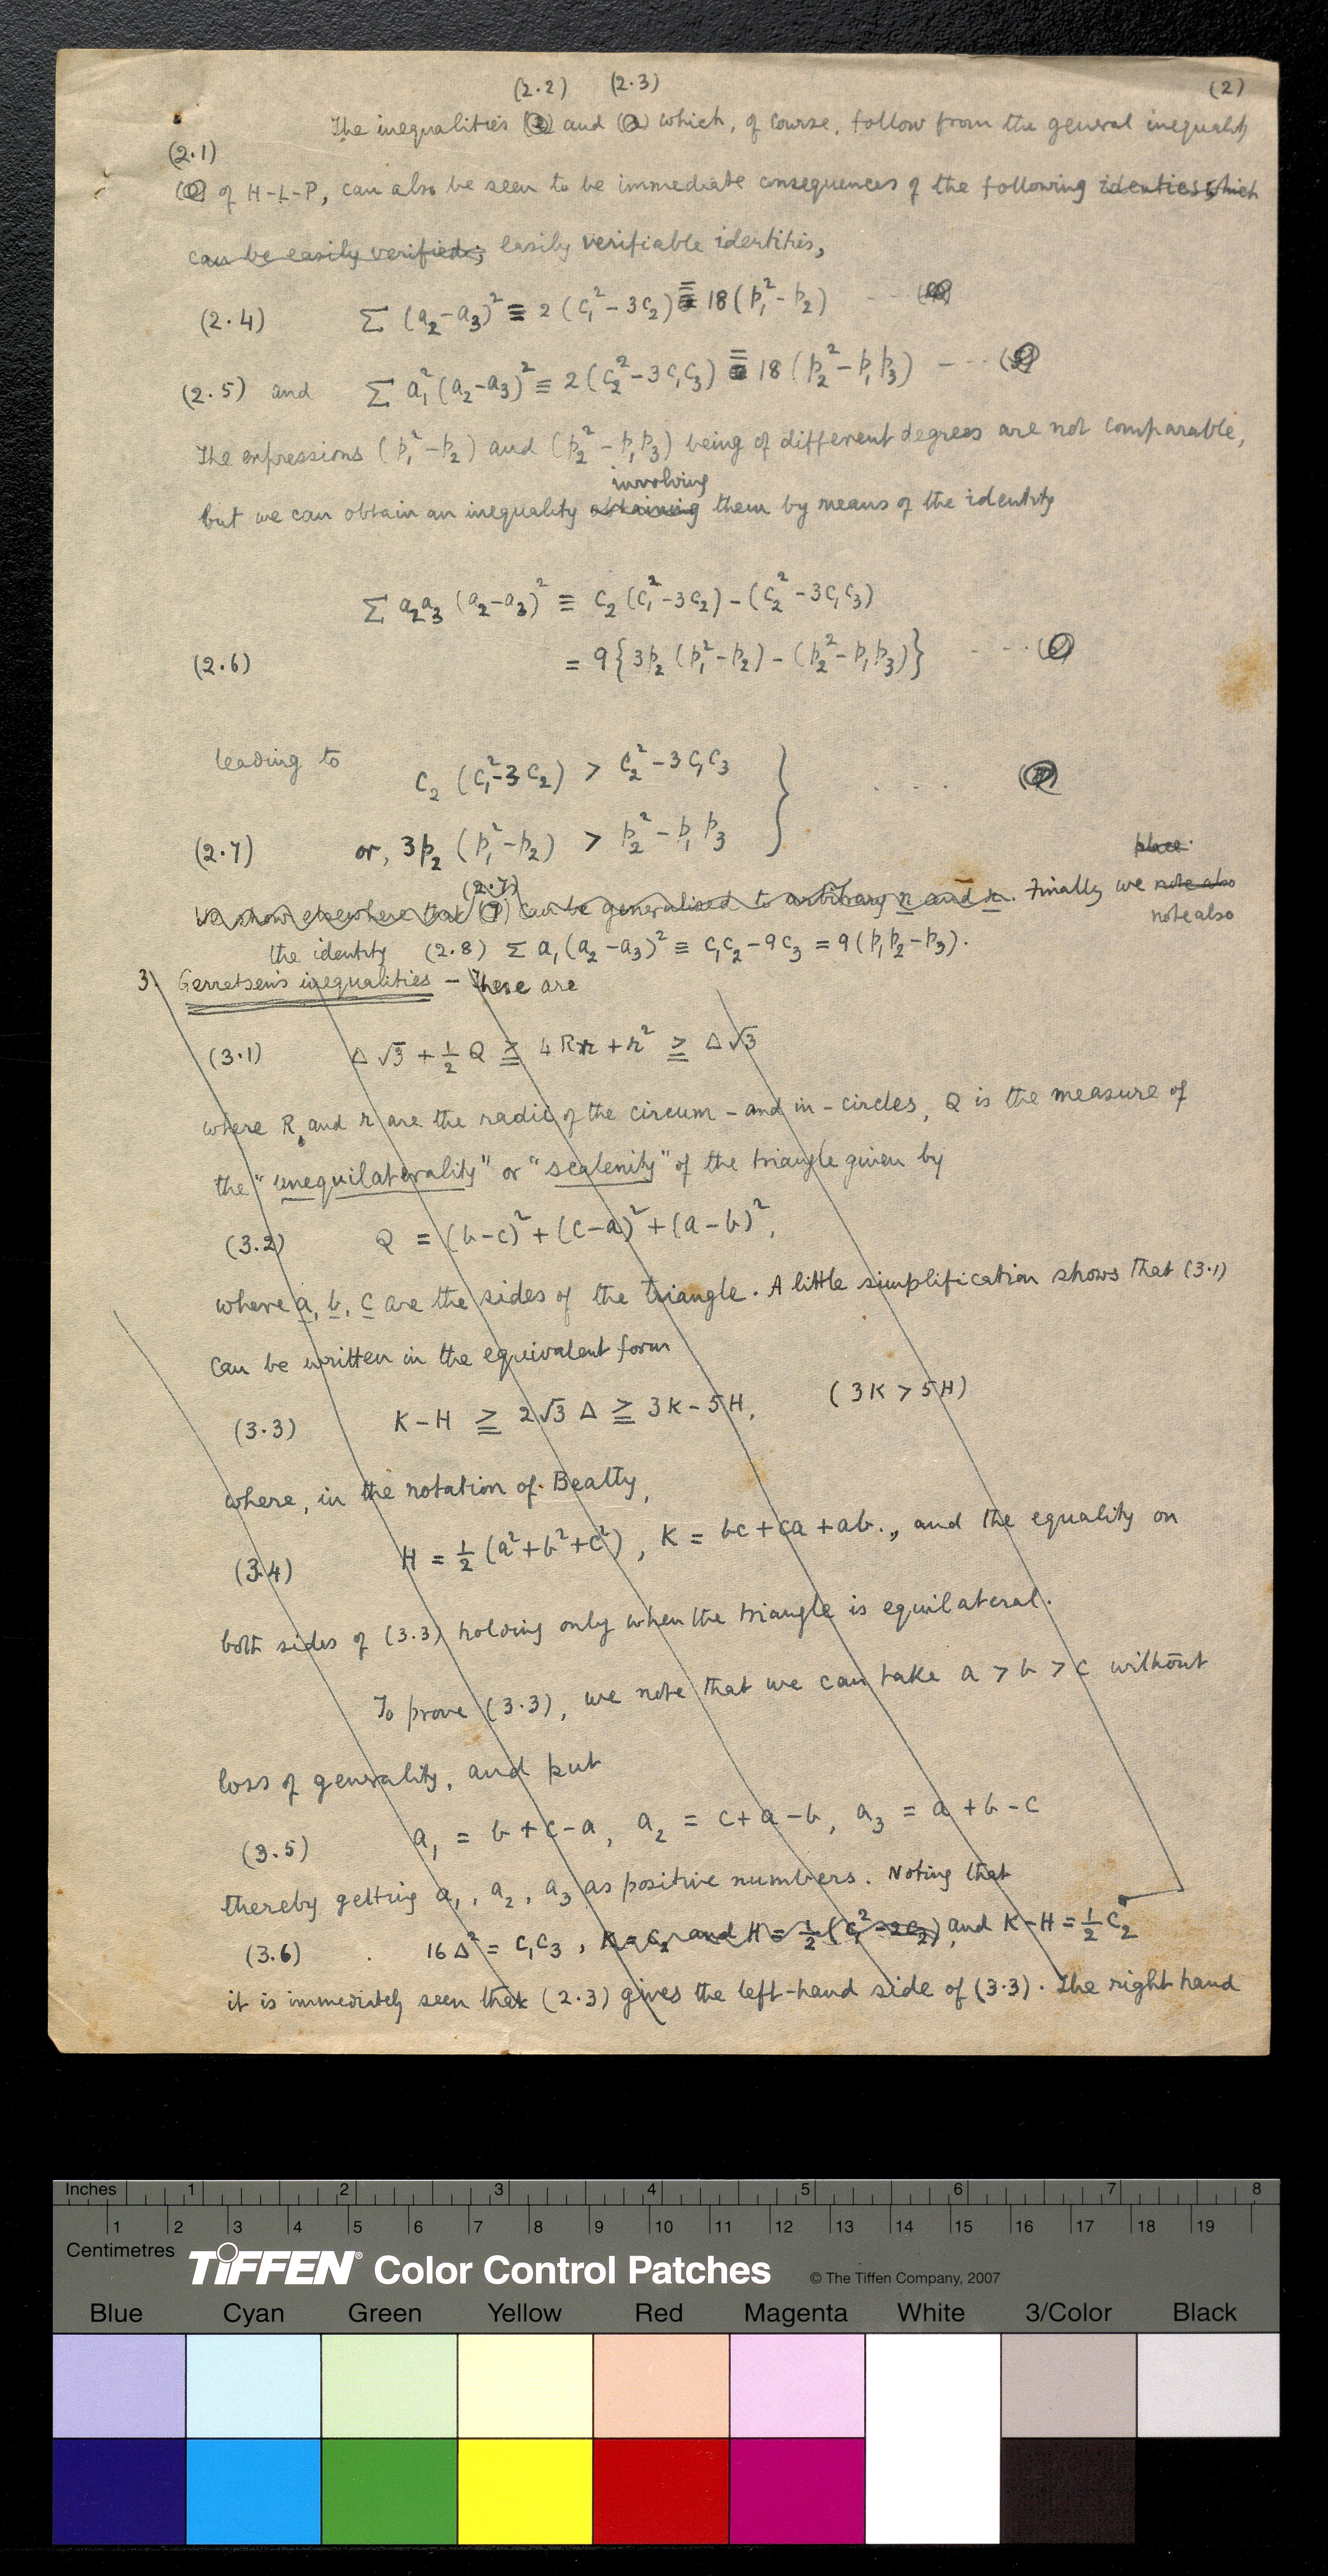 (2.2) (2.3) (2)
The inequalities and which, of course, follow from the general inequality
(2.1)
of H-L-P, can also be seen to be immediate consequences of the following identities which
can be easily verified; easily verifiable identities,
(2.4) Σ (a₂-a₃)² ≡ 2 (c₁² - 3c₂) ≡ 18 (p₁² - p₂) - - -
(2.5) and Σ a₁² (a₂-a₃)² ≡ 2 (c₂² - 3c₁c₃) ≡ 18 (p₂² - p₁p₃) - - -
The expressions (p₁² - p₂) and (p₂² - p₁p₃) being of different degrees are not comparable,
involving
but we can obtain an inequality obtaining them by means of the identity
Σ a₂a₃ (a₂-a₃)² ≡ c₂ (c₁² - 3c₂) - (c₂² - 3c₁c₃)
(2.6) = 9 {3p₂ (p₁² - p₂) - (p₂² - p₁p₃)} - - -
leading to
c₂ (c₁² - 3c₂) > c₂² - 3c₁c₃ } - - -
(2.7) or, 3p₂ (p₁² - p₂) > p₂² - p₁p₃
place
(2.7)
We show elsewhere that (7) can be generalised to arbitrary n and r. Finally we note also
note also
the identity (2.8) Σ a₁ (a₂-a₃)² ≡ c₁c₂ - 9c₃ = 9 (p₁p₂ - p₃).
3. Gerretsen's inequalities - These are
(3.1) Δ√3 + ½ Q ≧ 4Rr + r² ≧ Δ√3
where R, and r are the radii of the circum- and in-circles, Q is the measure of
the "unequilaterality" or "scalenity" of the triangle given by
(3.2) Q = (b-c)² + (c-a)² + (a-b)²,
where a, b, c are the sides of the triangle. A little simplification shows that (3.1)
can be written in the equivalent form
(3.3) K-H ≧ 2√3 Δ ≧ 3K-5H, (3K > 5H)
where, in the notation of Beatty,
(3.4) H = ½ (a²+b²+c²), K = bc+ca+ab., and the equality on
both sides of (3.3) holding only when the triangle is equilateral.
To prove (3.3), we note that we can take a > b > c without
loss of generality, and put
(3.5) a₁ = b+c-a, a₂ = c+a-b, a₃ = a+b-c
thereby getting a₁, a₂, a₃ as positive numbers. Noting that
(3.6) 16Δ² = c₁c₃, K = c₂ and H = ½ (c₁² - 2c₂), and K-H = ½ c₂
it is immediately seen that (2.3) gives the left-hand side of (3.3). The right hand
Inches 1 2 3 4 5 6 7 8
1 2 3 4 5 6 7 8 9 10 11 12 13 14 15 16 17 18 19
Centimetres
TIFFEN® Color Control Patches © The Tiffen Company, 2007
Blue Cyan Green Yellow Red Magenta White 3/Color Black